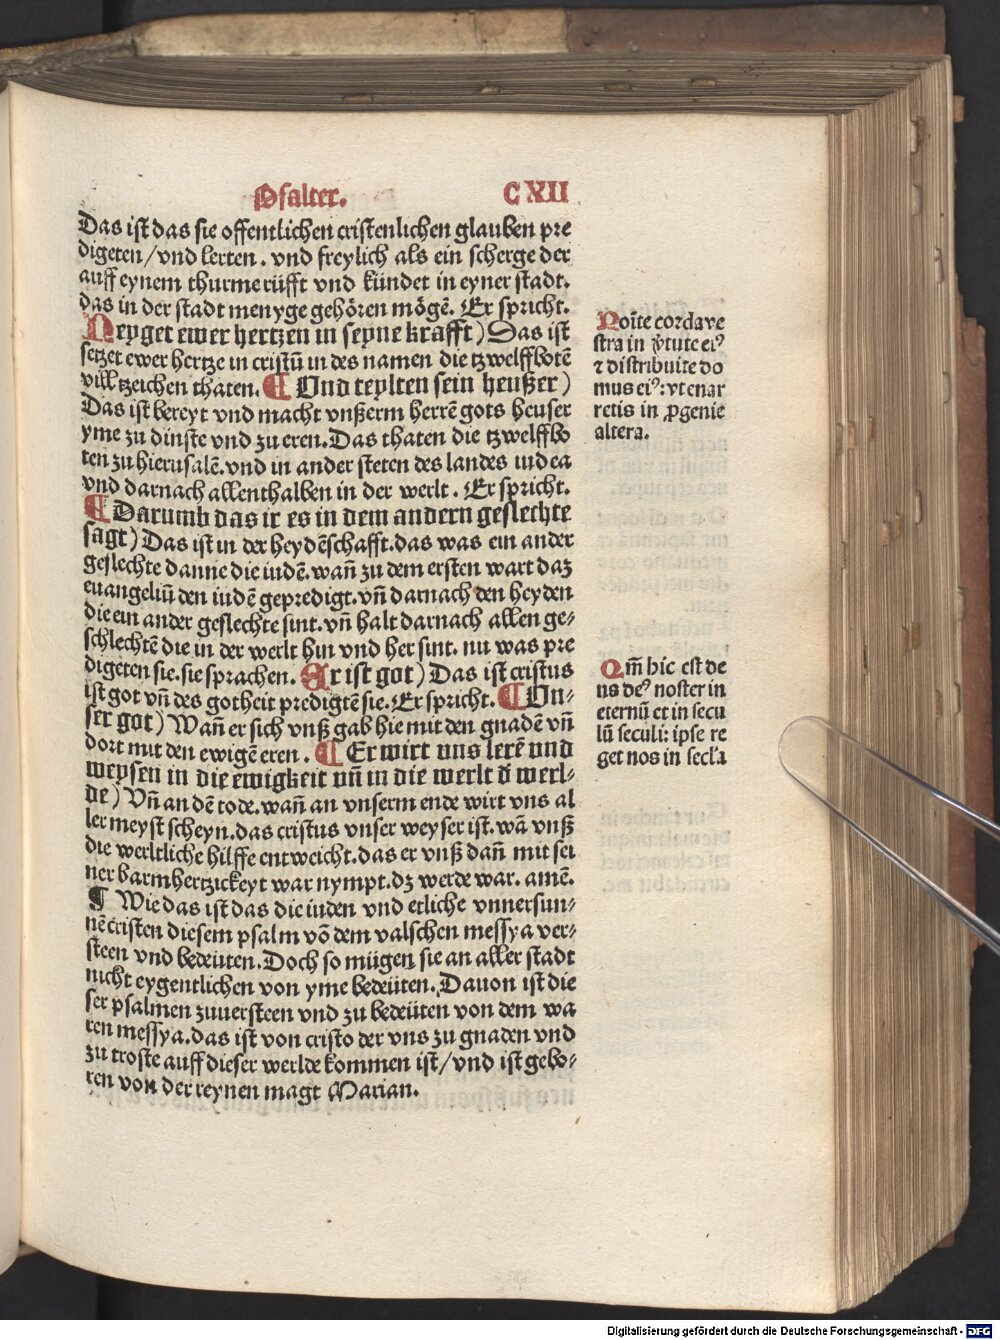 Psalter. CXII
Das ist das sie offentlichen cristenlichen glauben pre
digeten/vnd lerten. vnd freylich als ein scherge der
auff eynem thurme rüfft vnd kündet in eyner stadt.
das in der stadt menyge gehören mögē. Er spricht.
Neyget ewer hertzen in seyne krafft) Das ist
setzet ewer hertze in cristū in des namen die tzwelffbotē
vill tzeichen thaten. ¶ Und teylten sein heußer)
Das ist bereyt vnd macht vnßerm herrē gots heuser
yme zu dinste vnd zu eren. Das thaten die tzwelffbo
ten zu hierusalē. vnd in ander steten des landes iudea
vnd darnach allenthalben in der werlt. Er spricht.
¶ Darumb das ir es in dem andern geslechte
sagt) Das ist in der heydēschafft. das was ein ander
geslechte danne die iudē. wañ zu dem ersten wart daz
euangeliū den iudē gepredigt. vñ darnach den heyden
die ein ander geslechte sint. vñ halt darnach allen ge⸗
schlechtē die in der werlt hin vnd her sint. nu was pre
digeten sie. sie sprachen. Er ist got) Das ist cristus
ist got vñ des gotheit predigtē sie. Er spricht. ¶ Un⸗
ser got) Wañ er sich vnß gab hie mit den gnadē vñ
dort mit den ewigē eren. ¶ Er wirt uns lerē und
weysen in die ewigkeit vñ in die werlt d̄ werl⸗
de) Vñ an dē tode. wañ an vnserm ende wirt vns al
ler meyst scheyn. das cristus vnser weyser ist. wā vnß
die werltliche hilffe entweicht. das er vnß dañ mit sei
ner barmhertzickeyt war nympt. dz werde war. amē.
¶ Wie das ist das die iuden vnd etliche vnnersun⸗
nē cristen diesem psalm vō dem valschen messya ver⸗
steen vnd bedeüten. Doch so mügen sie an aller stadt
nicht eygentlichen von yme bedeüten. Dauon ist die
ser psalmen zuuersteen vnd zu bedeüten von dem wa
ren messya. das ist von cristo der vns zu gnaden vnd
zu troste auff dieser werlde kommen ist/vnd ist gebo⸗
ren von der reynen magt Marian.
Noīte corda ve
stra in v̓tute ei⁹
⁊ distribuite do
mus ei⁹: vt enar
retis in ꝓgenie
altera.
Qm̄ hic est de
us de⁹ noster in
eternū et in secu
lū seculi: ipse re
get nos in secl̓a
Digitalisierung gefördert durch die Deutsche Forschungsgemeinschaft - DFG